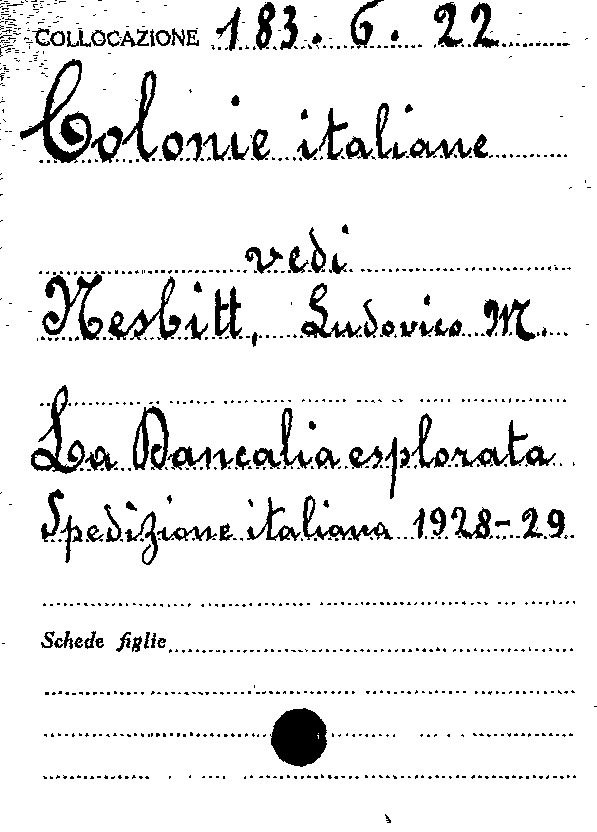 COLLOCAZIONE 183. 6. 22
Colonie italiane
vedi
Nesbitt, Ludovico M.
La Dancalia esplorata
Spedizione italiana 1928-29
Schede figlie